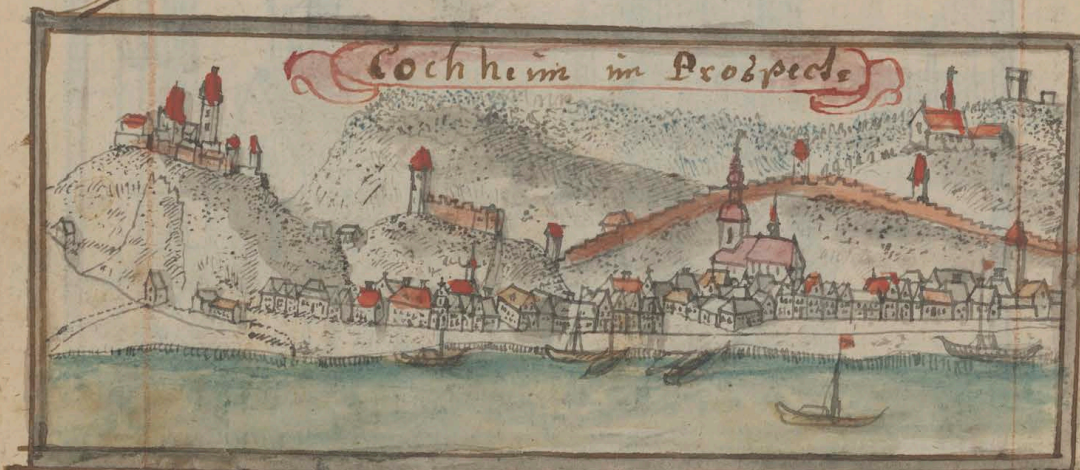 Cochheim im Prospecte